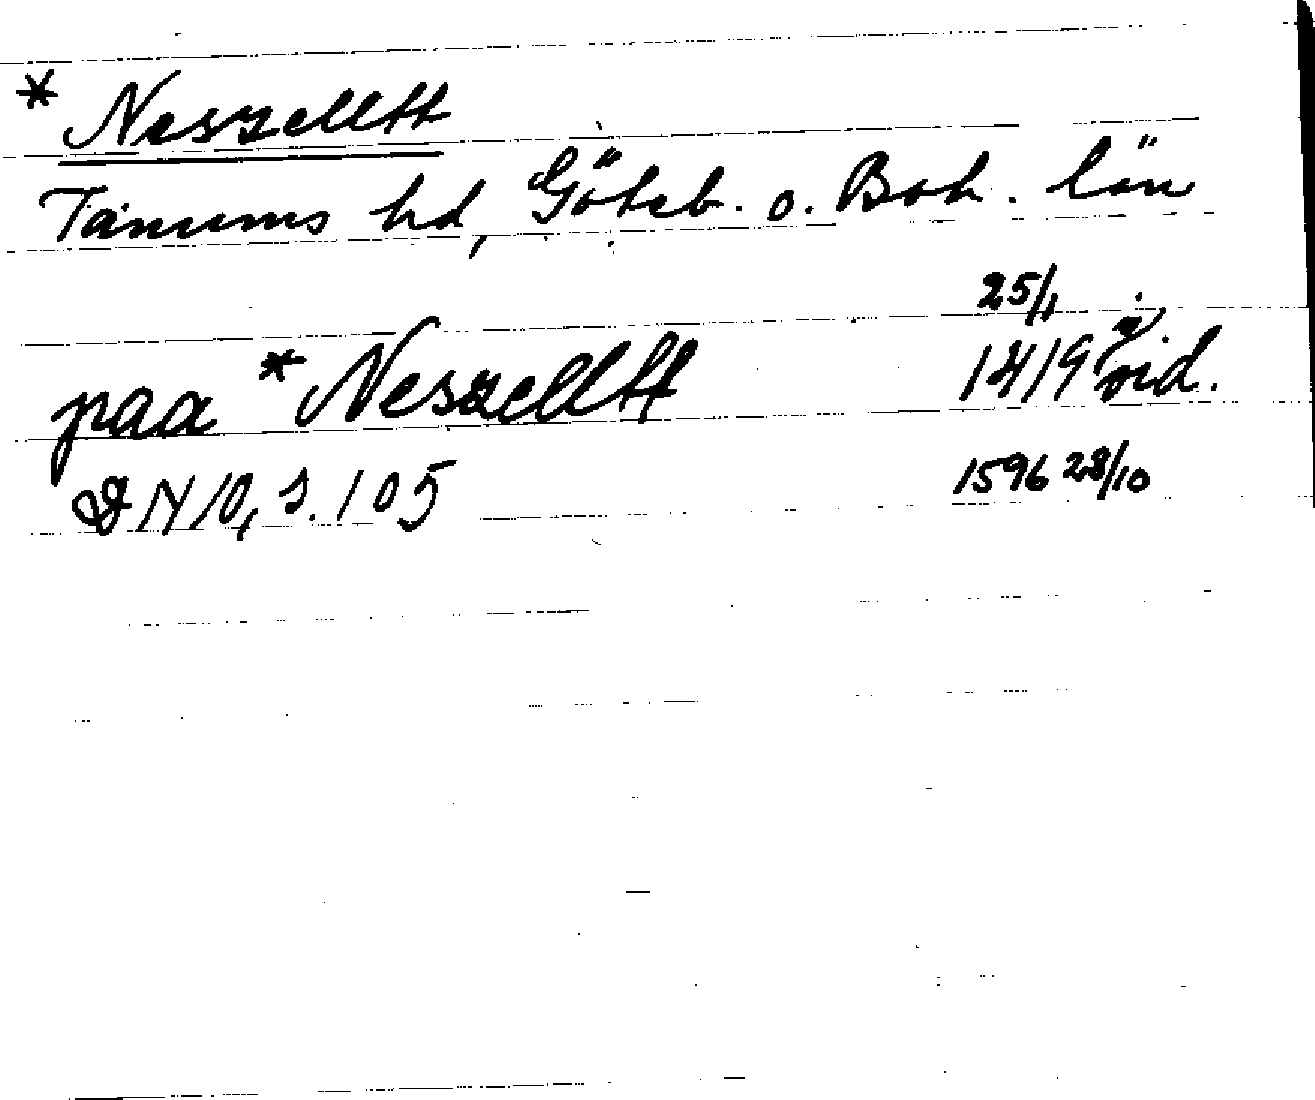 * Neszelltt
Tanums hd, Göteb. o. Boh. län
paa *Neszelltt 25/1 1419 i vid.
DN 10, s. 105 1596 28/10